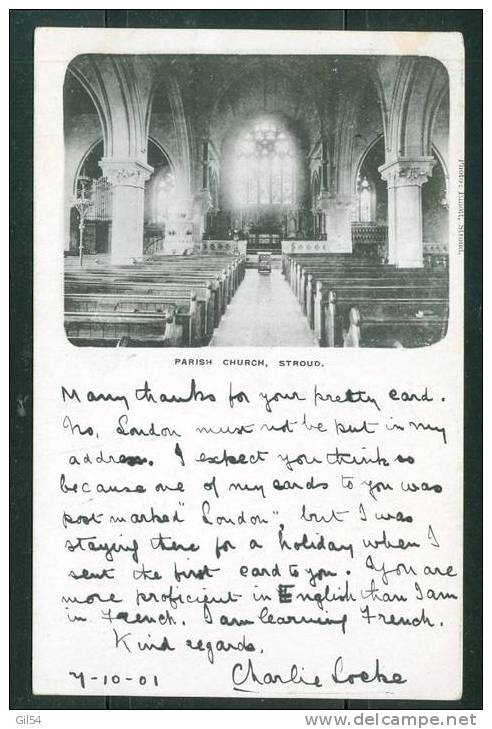 Photo: Elliott, Stroud.
PARISH CHURCH, STROUD.
Many thanks for your pretty card.
No, London must not be put in my
address. I expect you think so
because one of my cards to you was
post marked "London", but I was
staying there for a holiday when I
sent the first card to you. You are
more proficient in English than I am
in French. I am learning French.
Kind regards.
7-10-01 Charlie Locke
Gil54
www.delcampe.net